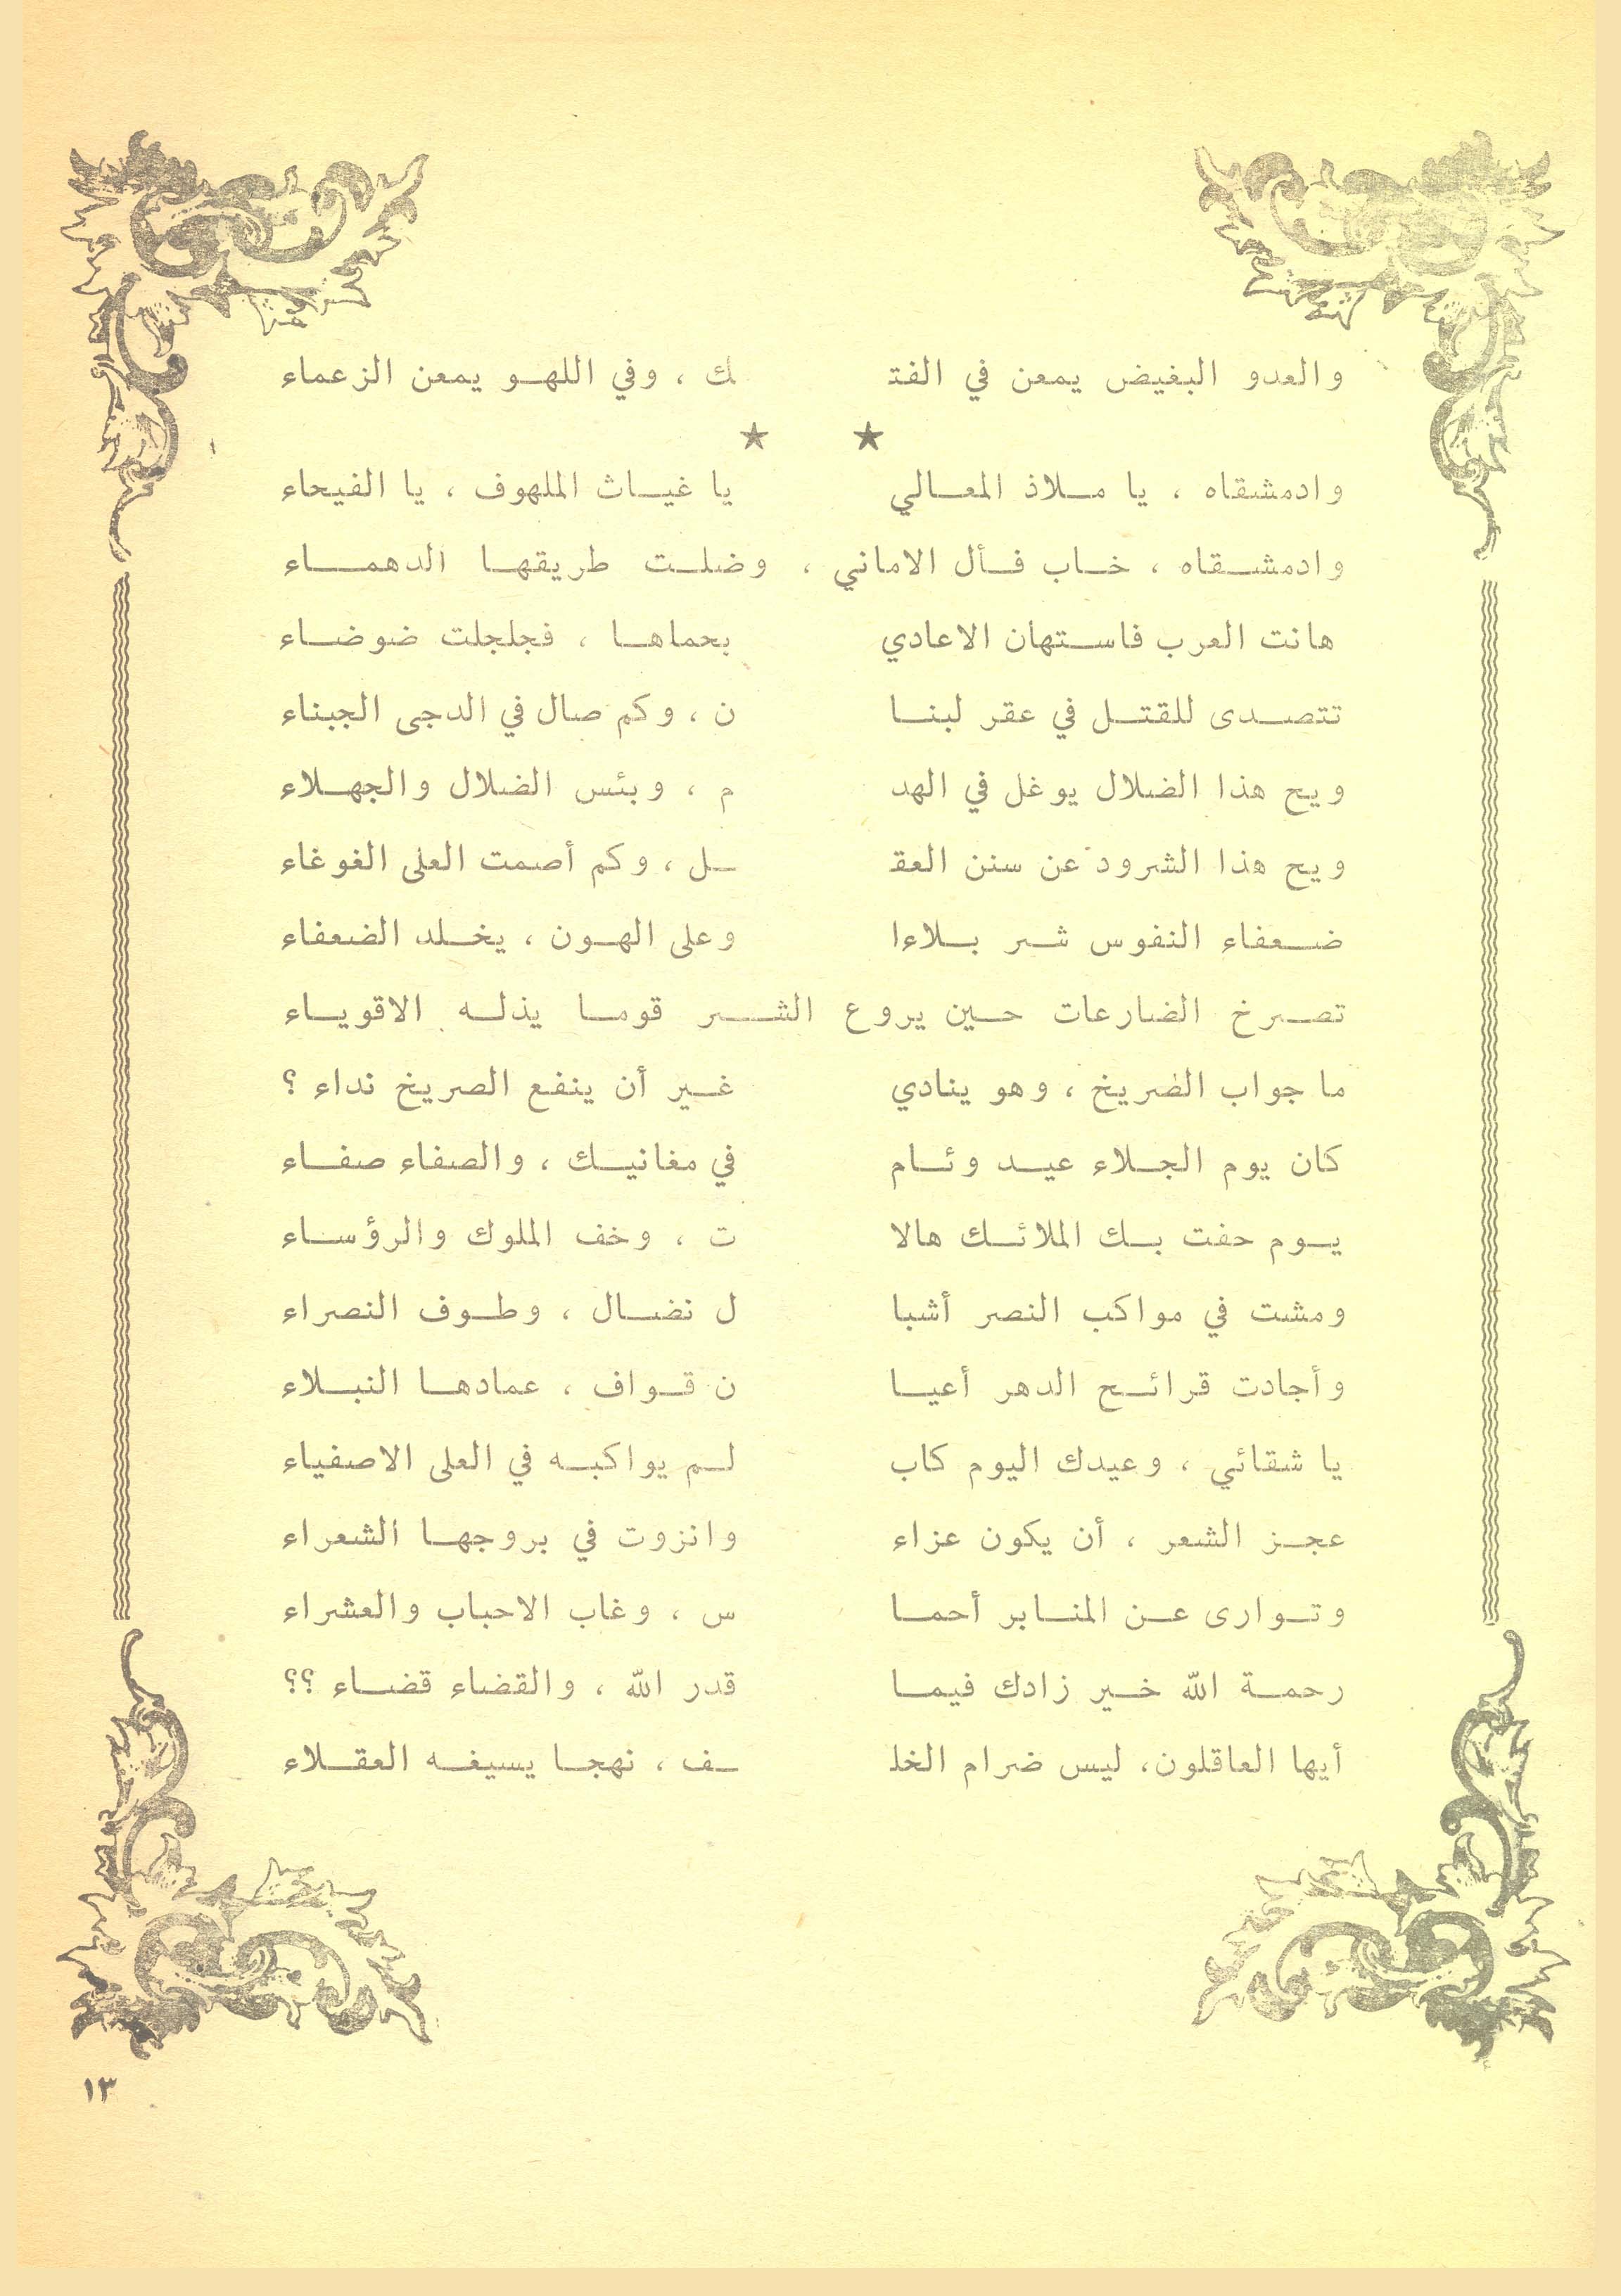 والعدو البغيض يمعن في الفتـ ـك ، وفي اللهو يمعن الزعماء
★ ★
وادمشقاه ، يا ملاذ المعالي يا غياث الملهوف ، يا الفيحاء
وادمشقاه ، خاب فأل الاماني ، وضلت طريقها الدهماء
هانت العرب فاستهان الاعادي بحماها ، فجلجلت ضوضاء
تتصدى للقتل في عقر لبنا ن ، وكم صال في الدجى الجبناء
ويح هذا الضلال يوغل في الهد م ، وبئس الضلال والجهلاء
ويح هذا الشرود عن سنن العقـ ـل ، وكم أصمت العلى الغوغاء
ضعفاء النفوس شر بلاءا وعلى الهون ، يخلد الضعفاء
تصرخ الضارعات حين يروع الشر قوما يذله الاقوياء
ما جواب الضريخ ، وهو ينادي غير أن ينفع الصريخ نداء ؟
كان يوم الجلاء عيد وئام في مغانيك ، والصفاء صفاء
يوم حفت بك الملائك هالا ت ، وخف الملوك والرؤساء
ومشت في مواكب النصر أشبا ل نضال ، وطوف النصراء
وأجادت قرائح الدهر أعيا ن قواف ، عمادها النبلاء
يا شقائي ، وعيدك اليوم كاب لم يواكبه في العلى الاصفياء
عجز الشعر ، أن يكون عزاء وانزوت في بروجها الشعراء
وتوارى عن المنابر أحما س ، وغاب الاحباب والعشراء
رحمة الله خير زادك فيما قدر الله ، والقضاء قضاء ؟؟
أيها العاقلون، ليس ضرام الخلـ ـف ، نهجا يسيغه العقلاء
١٣